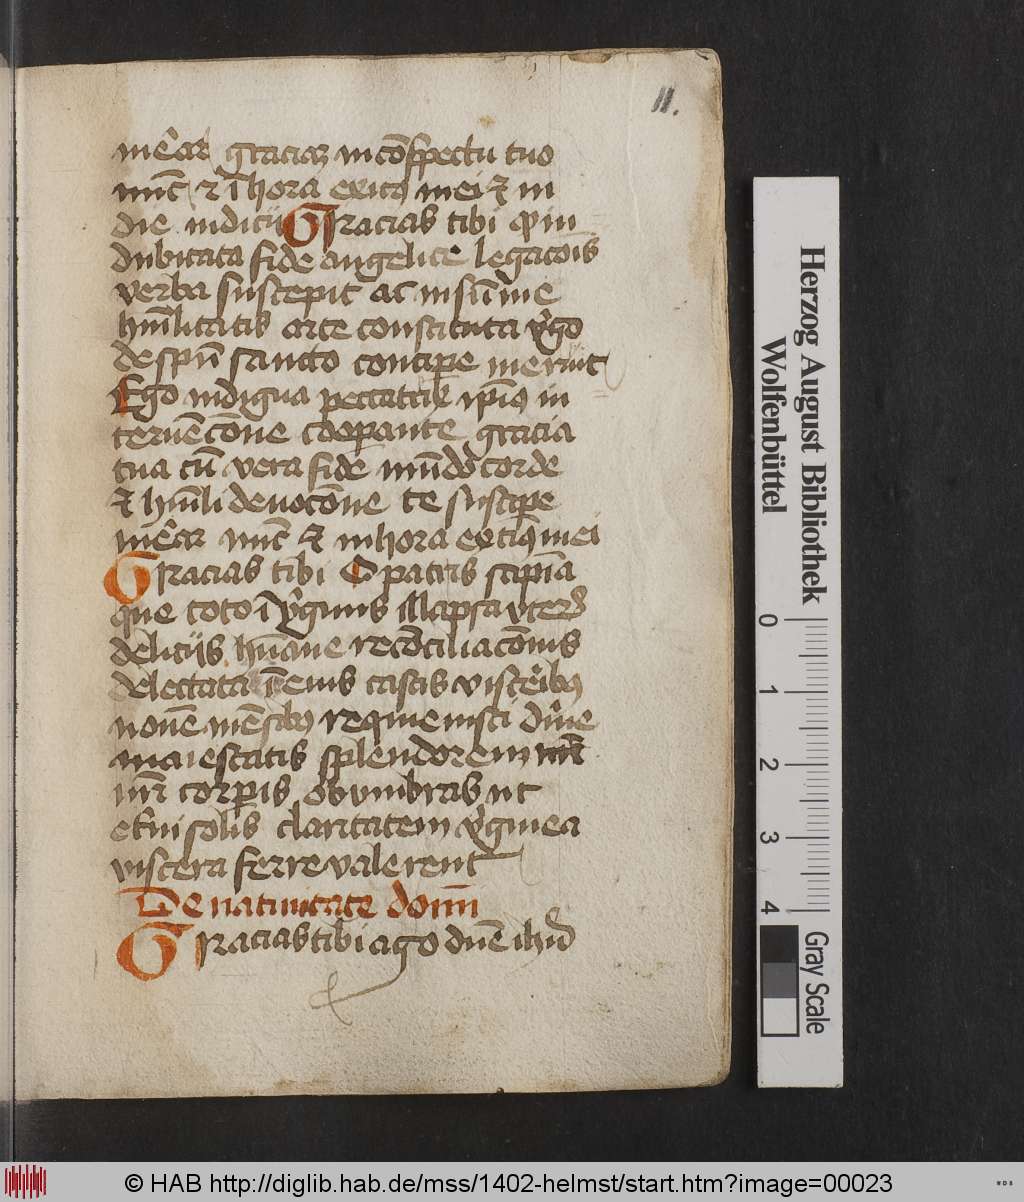 11.
mēar graciaꝫ in cōspectu tuo
nūc ⁊ ī hora exitꝯ mei et in
die iudicii Gracias tibi ꝙ in
dubitata fide angelice legacōis
verba suscepit ac in sūme
hūilitatis arte constituta v̓go
de spū sancto concipe meruit
Ego indigna peccatrix ip̄iꝯ in
teruēcōne coopante gracia
tua cū vera fide mūdo corde
et hūili deuocōne te suscipe
mēar nūc et in hora exitꝯ mei
Gracias tibi O patris sapiēa
que toto ī v̓ginis illapsa vtero
deliciis hūane recōciliacōnis
delectata ī eius castis visceribꝯ
nouē mēsibꝯ requieuisti diu̓ne
maiestatis splendorem
nr̄i corpis obumbras ut
et̄ni solis claritatem v̓ginea
viscera ferre valerent
De natiuitate domī
Gracias tibi ago dn̄e ihū
Herzog August Bibliothek
Wolfenbüttel
0 1 2 3 4
Gray Scale
© HAB http://diglib.hab.de/mss/1402-helmst/start.htm?image=00023